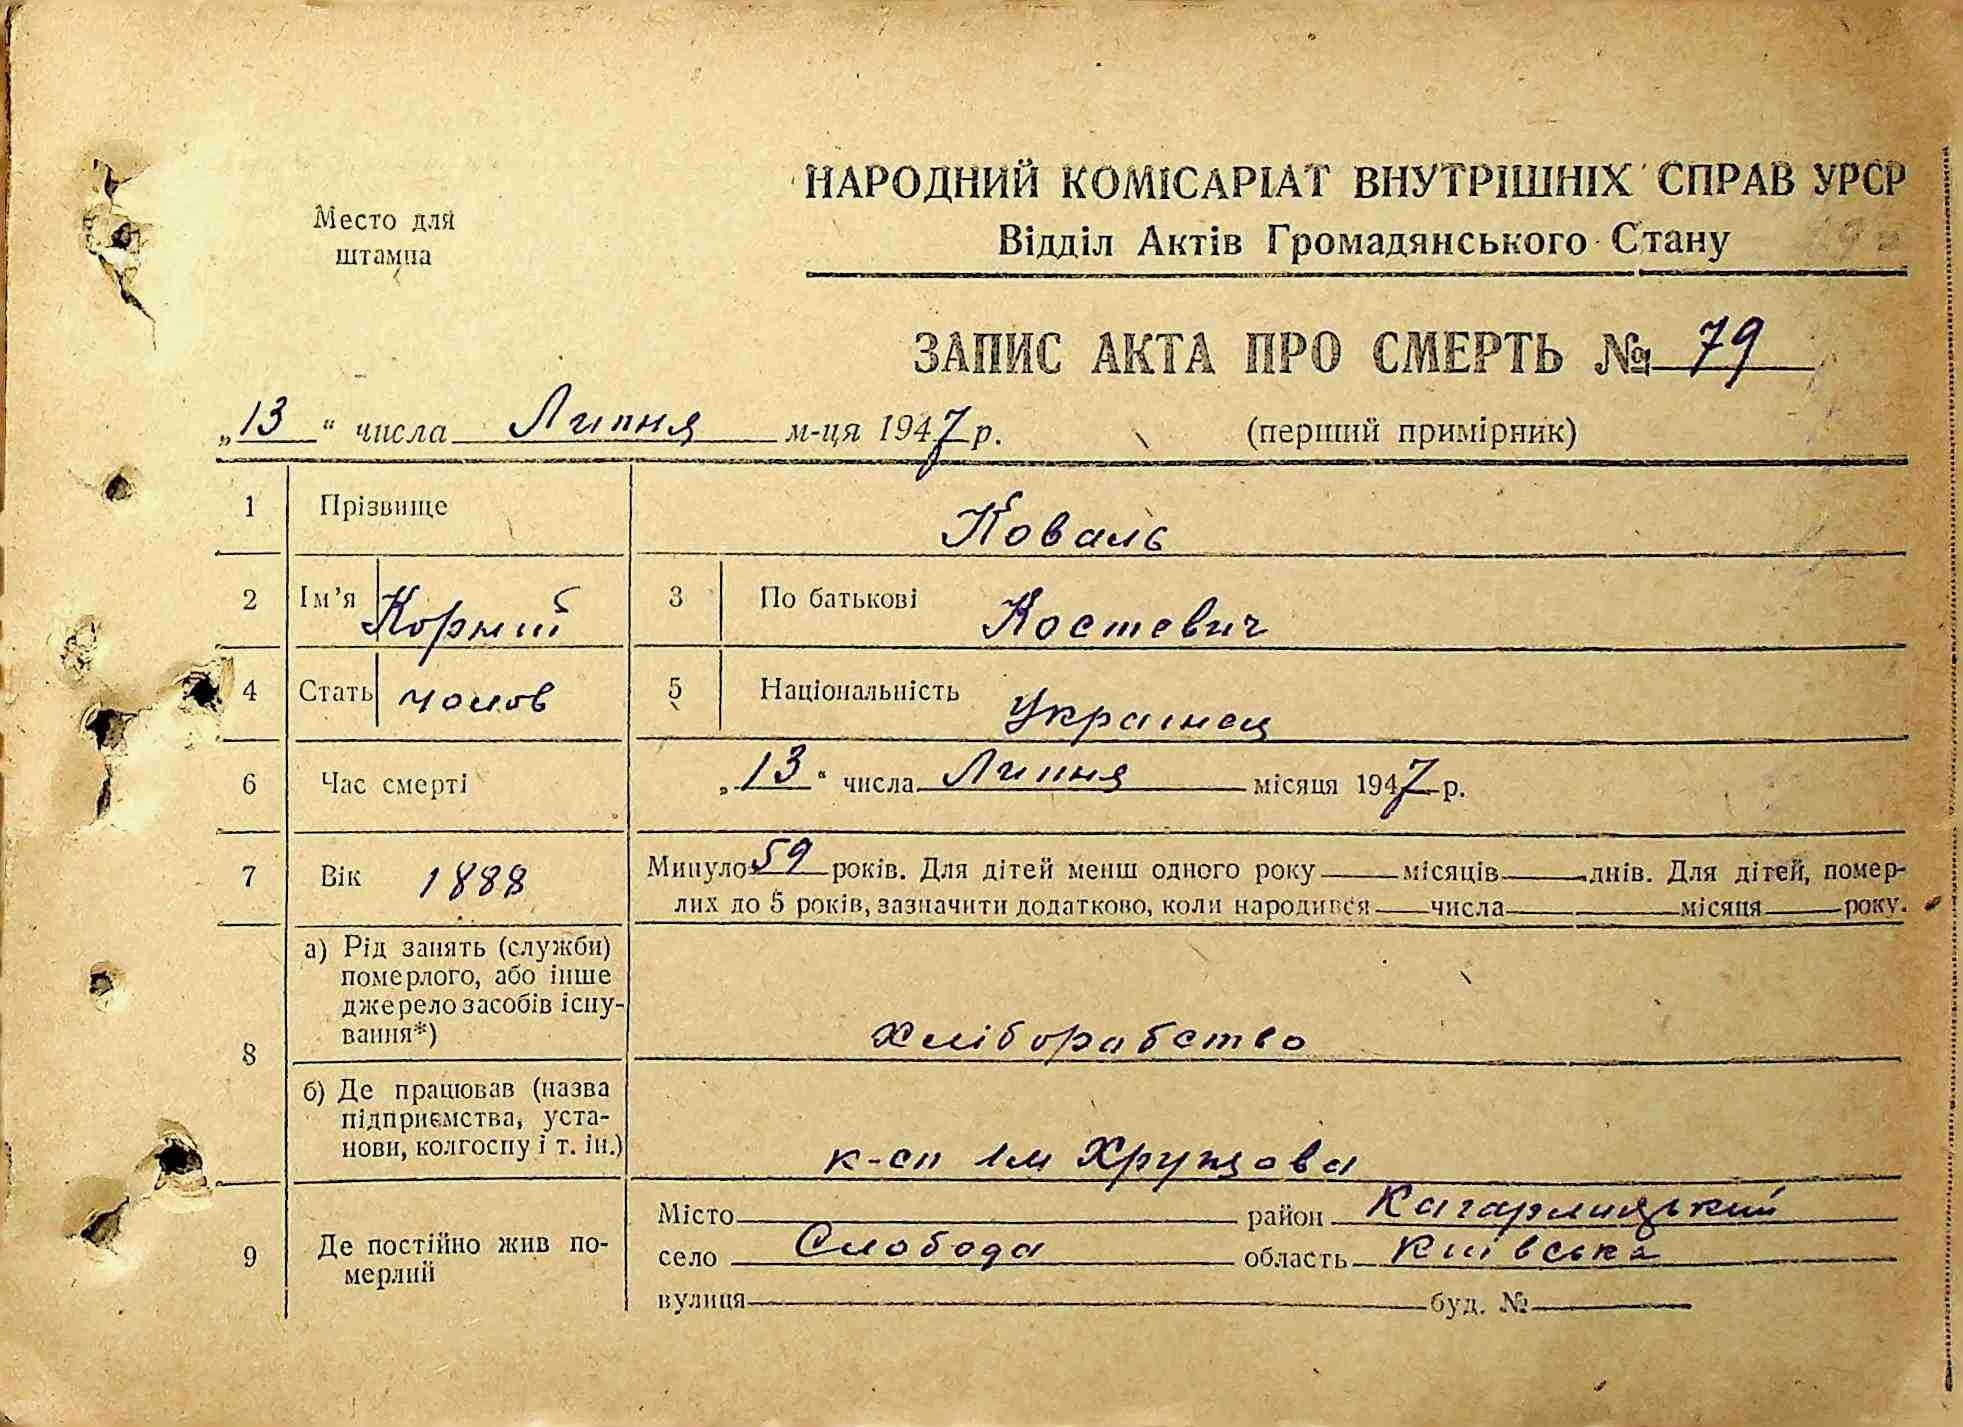 Место для
штампа
НАРОДНИЙ КОМІСАРІАТ ВНУТРІШНІХ СПРАВ УРСР
Відділ Актів Громадянського Стану
ЗАПИС АКТА ПРО СМЕРТЬ № 79
„13“ числа Липня м-ця 1947 р. (перший примірник)
1 Прізвище Коваль
2 Ім’я Корній 3 По батькові Костевич
4 Стать чолов 5 Національність Українец
6 Час смерті „13“ числа Липня місяця 1947 р.
7 Вік 1888 Минуло 59 років. Для дітей менш одного року місяців днів. Для дітей, помер-
лих до 5 років, зазначити додатково, коли народився числа місяця року.
8 а) Рід занять (служби)
померлого, або інше
джерело засобів існу-
вання*) хліборабство
б) Де працював (назва
підприємства, уста-
нови, колгоспу і т. ін.) к-сп ім Хрущова
9 Де постійно жив по-
мерлий
Місто район Кагарлицький
село Слобода область Київська
вулиця буд. №